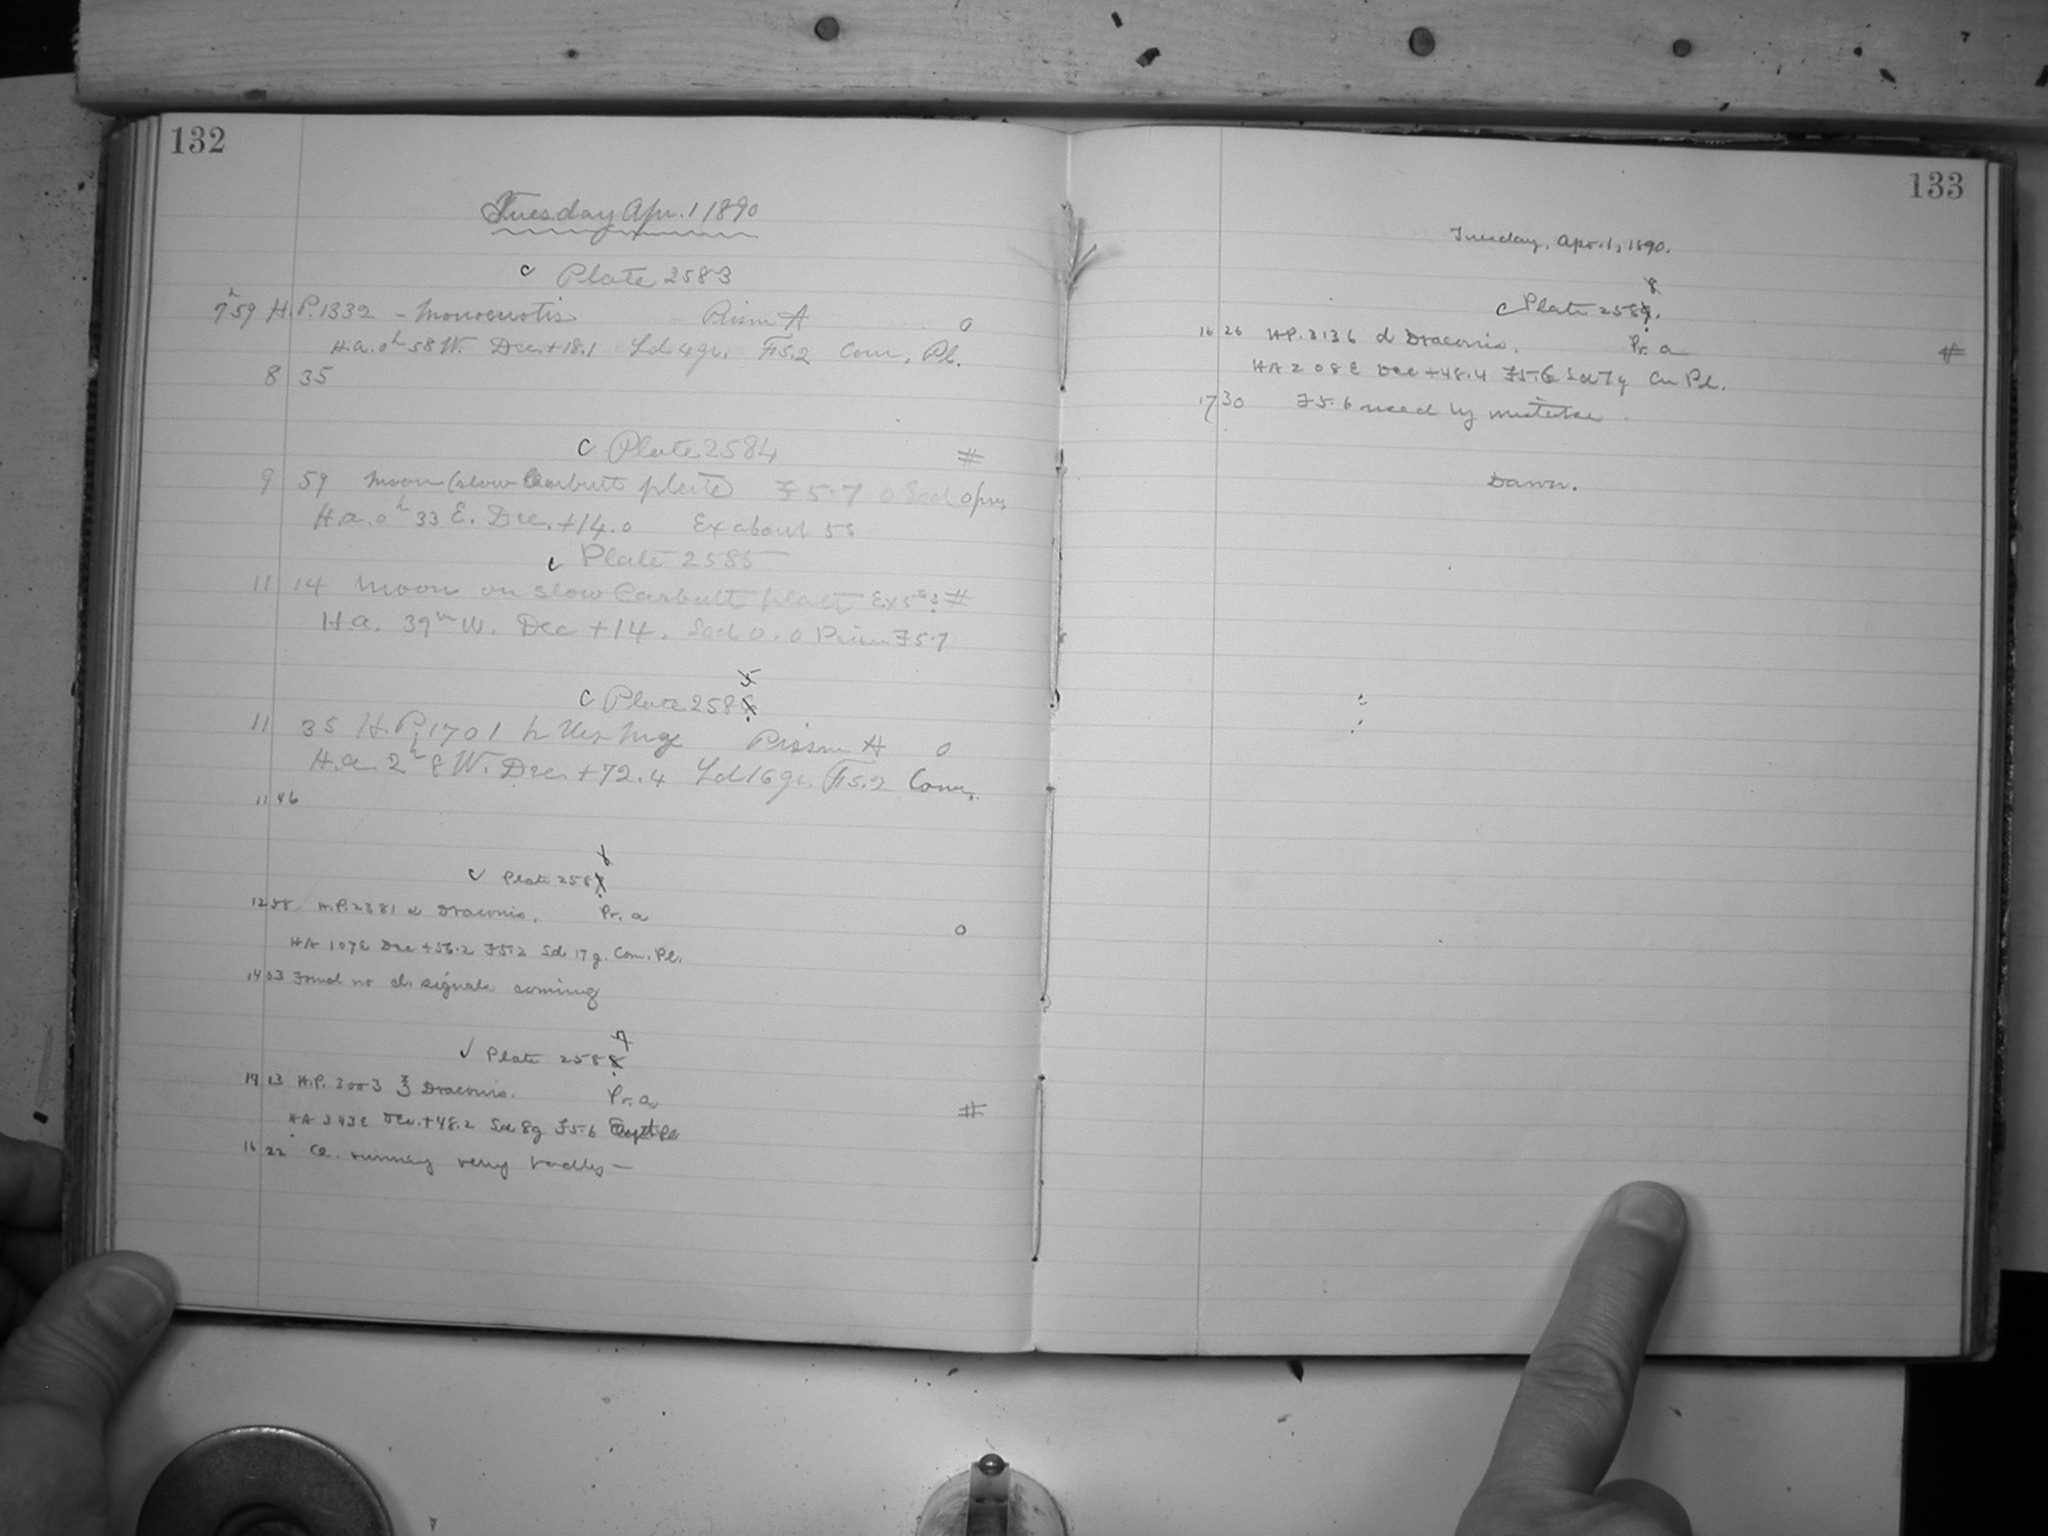 132
Tuesday Apr. 1 1890
c Plate 2583
7h 59 H.P. 1332 - Monocerotis Prism A 0
H.a. 0h 58 W. Dec. +18.1 Sd 4gr. F5.2 Com. Pl.
8 35
c Plate 2584 #
9 59 Moon (slow Carbutt plate F5.7 0 Sed 0 prs
H.a. 0h 33 E. Dec. +14.0 Ex about 5s
c Plate 2585
11 14 Moon on slow Carbutt plate Ex 5s #
H.a. 39m W. Dec +14. Sed 0.0 Prism F5.7
5
c Plate 258
11 35 H.P. 1701 h Urs Maj Prism A 0
H.a. 2h 8 W. Dec. +72.4 Sd 16gr. F5.2 Com.
11 46
6
c Plate 258
12 58 H.P. 2381 α Draconis. Pr. a
HA 1 07 E Dec +56.2 F5.2 Sd 17g. Com. Pl. 0
14 03 Found no cl. signals coming
7
Plate 258
14 13 H.P. 3003 ξ Draconis. Pr. a
HA 3 43 E Dec. +48.2 Sd 8g F5.6 Pl #
16 22 Cl. running very badly—
133
Tuesday, Apr. 1, 1890.
8
c Plate 258
16 26 H.P. 3136 d Draconis. Pr. a #
HA 2 08 E Dec +48.4 F5.6 Sd 7g Cr Pl.
17 30 F5.6 used by mistake.
Dawn.